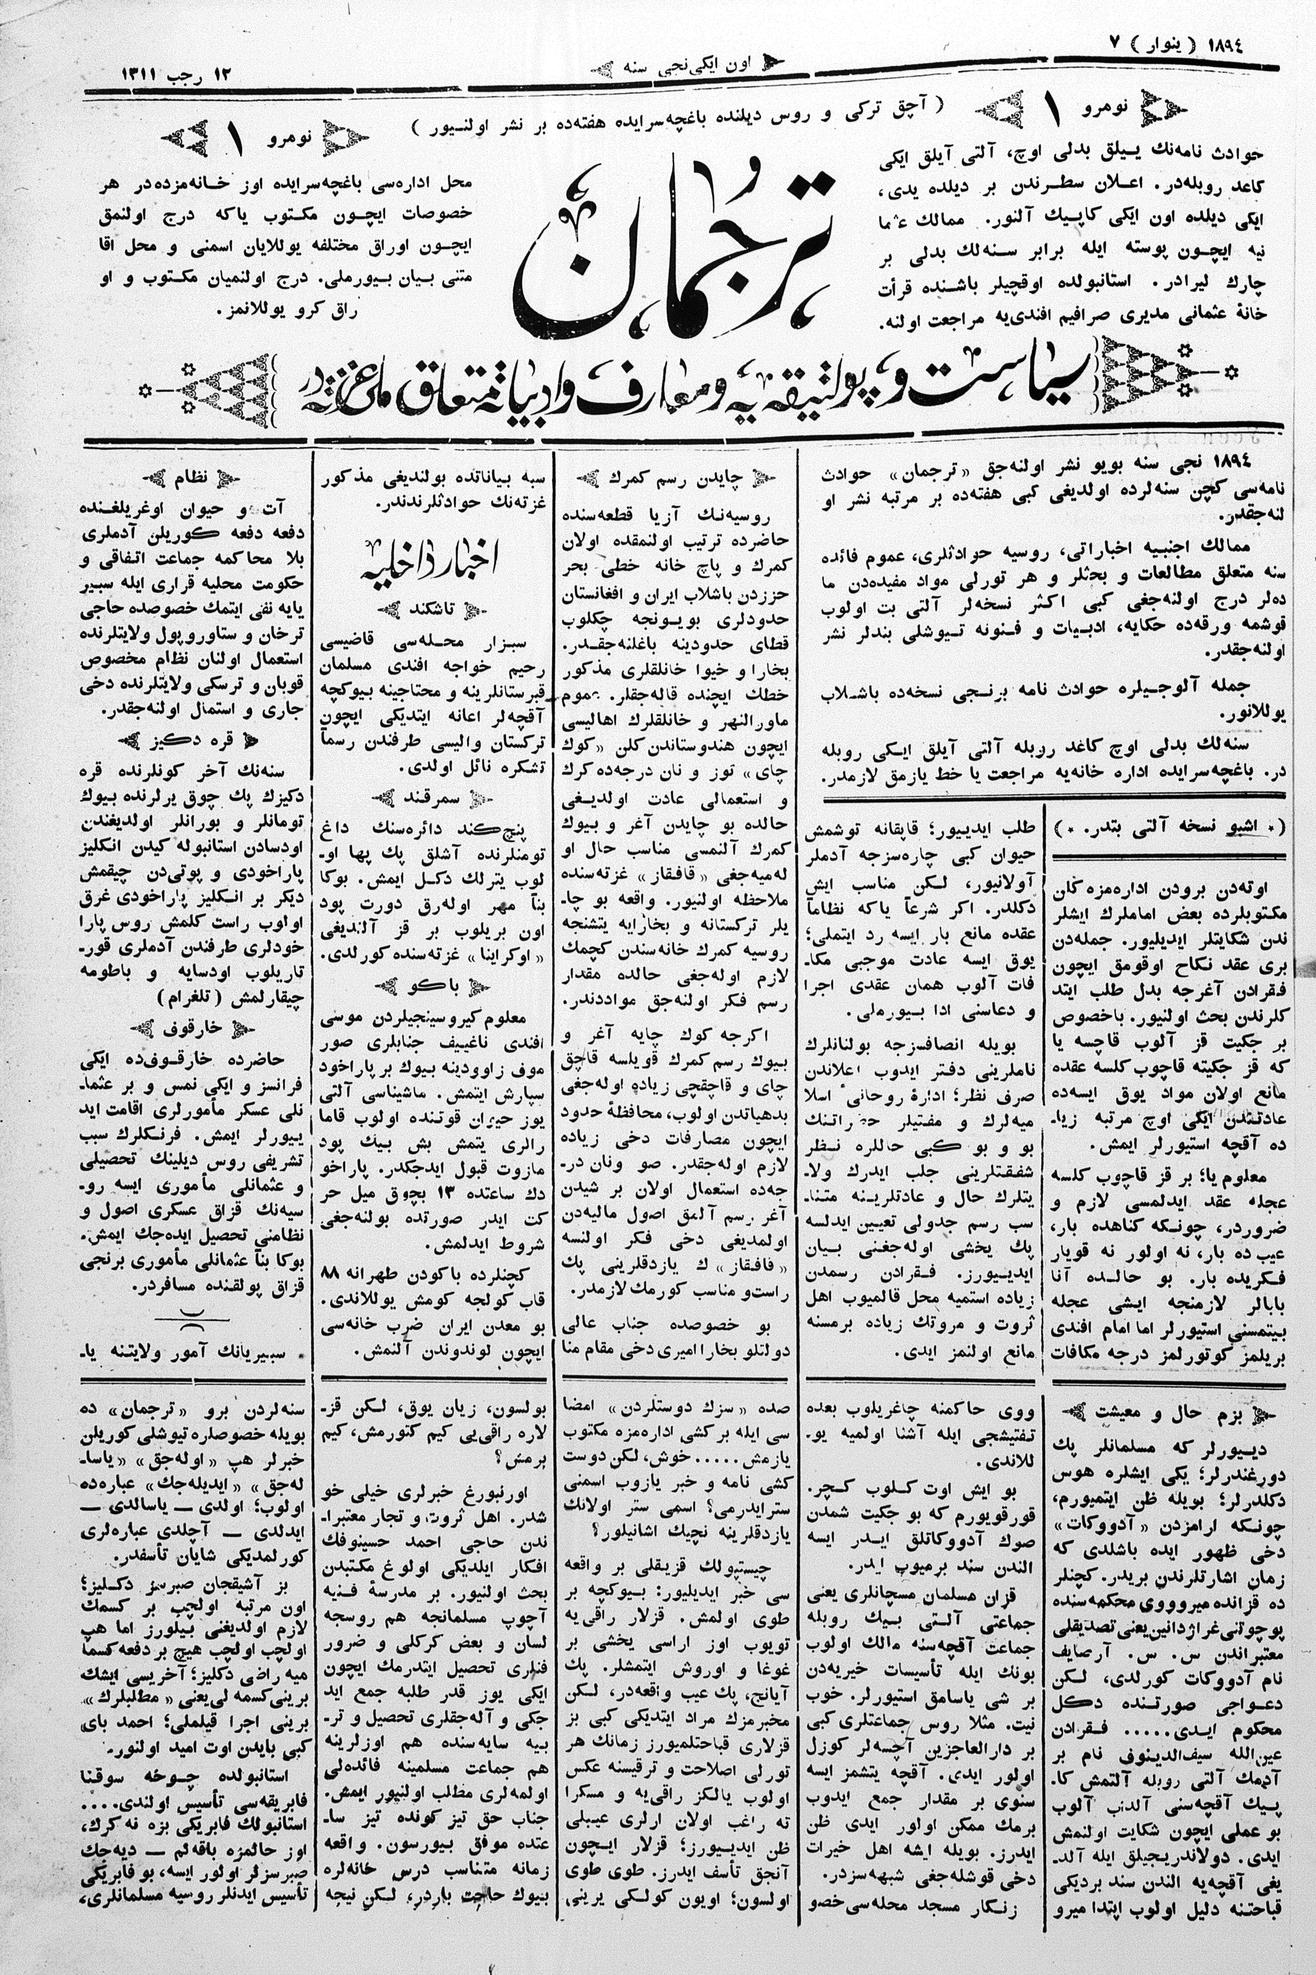 ١٨٩٤ ( ینوار ) ٧
اون ایکی نجی سنه
١٢ رجب ١٣١١
( آچق ترکی و روس دیلنده باغچه سرایده هفته‌ده بر نشر اولنیور )
نومرو ١
حوادث نامه‌نك ییلق بدلی اوچ، آلتی آیلق ایکی
کاغد روبله‌در. اعلان سطرندن بر دیلده یدی،
ایکی دیلده اون ایکی کاپیك آلنور. ممالك عثما
نیه ایچون پوسته ایله برابر سنه‌لك بدلی بر
چارك لیرادر. استانبولده اوقچیلر باشنده قرأت
خانهٔ عثمانی مدیری صرافیم افندی‌یه مراجعت اولنه.
ترجمان
نومرو ١
محل اداره‌سی باغچه‌سرایده اوز خانه‌مزده‌در هر
خصوصات ایچون مکتوب یاکه درج اولنمق
ایچون اوراق مختلفه یوللایان اسمنی و محل اقا
متنی بیان بیورملی. درج اولنمیان مکتوب و او
راق کرو یوللانمز.
سیاست و پولتیقه‌یه و معارف و ادبیاته متعلق ملی غزته‌در
١٨٩٤ نجی سنه بویو نشر اولنه‌جق «ترجمان» حوادث
نامه‌سی کچن سنه‌لرده اولدیغی کبی هفته‌ده بر مرتبه نشر او
لنه‌جقدر.
ممالك اجنبیه اخباراتی، روسیه حوادثلری، عموم فائده
سنه متعلق مطالعات و بحثلر و هر تورلی مواد مفیده‌دن ما
ده‌لر درج اولنه‌جغی کبی اکثر نسخه‌لر آلتی بت اولوب
قوشمه ورقه‌ده حکایه، ادبیات و فنونه تیوشلی بندلر نشر
اولنه‌جقدر.
جمله آلوجیلره حوادث نامه برنجی نسخه‌ده باشلاب
یوللانور.
سنه‌لك بدلی اوچ کاغد روبله آلتی آیلق ایکی روبله
در. باغچه‌سرایده اداره خانه‌یه مراجعت یا خط یازمق لازمدر.
(٠ اشبو نسخه آلتی بتدر. ٠)
اوته‌دن برودن اداره‌مزه کلن
مکتوبلرده بعض اماملرك ایشلر
ندن شکایتلر ایدیلیور. جمله‌دن
بری عقد نکاح اوقومق ایچون
فقرادن آغرجه بدل طلب ایتد
کلرندن بحث اولنیور. باخصوص
بر جکیت قز آلوب قاچسه یا
که قز جکیته قاچوب کلسه عقده
مانع اولان مواد یوق ایسه‌ده
عادتندن ایکی اوچ مرتبه زیا-
ده آقچه استیورلر ایمش.
معلوم یا؛ بر قز قاچوب کلسه
عجله عقد ایدلمسی لازم و
ضروردر، چونکه کناهده بار،
عیب ده بار، نه اولور نه قویار
فکریده بار. بو حالده آنا
بابالر لازمنجه ایشی عجله
بیتمسنی استیورلر اما امام افندی
بریلمز کوتورلمز درجه مکافات
طلب ایدییور؛ قاپقانه توشمش
حیوان کبی چاره‌سزجه آدملر
آولانیور، لکن مناسب ایش
دکلدر. اکر شرعاً یاکه نظاماً
عقده مانع بار ایسه رد ایتملی؛
یوق ایسه عادت موجبی مکا-
فات آلوب همان عقدی اجرا
و دعاسنی ادا بیورملی.
بویله انصافسزجه بولنانلرك
ناملرینی دفتر ایدوب اعلاندن
صرف نظر؛ ادارهٔ روحانی اسلا
میه‌لرك و مفتیلر حضراتنك
بو و بو کبی حاللره نظر
شفقتلرینی جلب ایدرك ولا-
یتلرك حال و عادتلرینه متنا-
سب رسم جدولی تعیین ایدلسه
پك یخشی اوله‌جغنی بیان
ایدییورز. فقرادن رسمدن
زیاده استمیه محل قالمیوب اهل
ثروت و مروتك زیاده برمسنه
مانع اولنمز ایدی.
چایدن رسم کمرك
روسیه‌نك آزیا قطعه‌سنده
حاضرده ترتیب اولنمقده اولان
کمرك و پاچ خانه خطی بحر
حززدن باشلاب ایران و افغانستان
حدودلری بویونجه چکلوب
قطای حدودینه باغلنه‌جقدر.
بخارا و خیوا خانلقلری مذکور
خطك ایچنده قاله‌جقلر. عموم
ماورالنهر و خانلقلرك اهالیسی
ایچون هندوستاندن کلن «کوك
چای» توز و نان درجه‌ده کرك
و استعمالی عادت اولدیغی
حالده بو چایدن آغر و بیوك
کمرك آلنمسی مناسب حال او
له‌میه‌جغی «قافقاز» غزته‌سنده
ملاحظه اولنیور. واقعه بو چا-
یلر ترکستانه و بخارایه یتشنجه
روسیه کمرك خانه‌سندن کچمك
لازم اوله‌جغی حالده مقدار
رسم فکر اولنه‌جق مواددندر.
اکرجه کوك چایه آغر و
بیوك رسم کمرك قویلسه قاچق
چای و قاچقچی زیاده اوله‌جغی
بدهیاتدن اولوب، محافظهٔ حدود
ایچون مصارفات دخی زیاده
لازم اوله‌جقدر. صو ونان در-
جه‌ده استعمال اولان بر شیدن
آغر رسم آلمق اصول مالیه‌دن
اولمدیغی دخی فکر اولنسه
«قافقاز»ك یازدقلرینی پك
راست و مناسب کورمك لازمدر.
بو خصوصده جناب عالی
دولتلو بخارا امیری دخی مقام منا
سبه بیاناتده بولندیغی مذکور
غزته‌نك حوادثلرندندر.
اخبار داخلیه
تاشکند
سبزار محله‌سی قاضیسی
رحیم خواجه افندی مسلمان
قبرستانلرینه و محتاجینه بیوکچه
آقچه‌لر اعانه ایتدیکی ایچون
ترکستان والیسی طرفندن رسماً
تشکره نائل اولدی.
سمرقند
پنچ‌کند دائره‌سنك داغ
تومنلرنده آشلق پك پها او-
لوب یترلك دکل ایمش. بوکا
بناً مهر اوله‌رق دورت پود
اون بریلوب بر قز آلندیغی
«اوکراینا» غزته‌سنده کورلدی.
باکو
معلوم کیروسینجیلردن موسی
افندی ناغییف جنابلری صور
موف زاوودینه بیوك بر پاراخود
سپارش ایتمش. ماشیناسی آلتی
یوز حیوان قوتنده اولوب قاما
رالری یتمش بش بیك پود
مازوت قبول ایدجکدر. پاراخو
دك ساعتده ١٣ بچوق میل حر
کت ایدر صورتده بولنه‌جغی
شروط ایدلمش.
کچنلرده باکودن طهرانه ٨٨
قاب کولچه کومش یوللاندی.
بو معدن ایران ضرب خانه‌سی
ایچون لوندوندن آلنمش.
نظام
آت و حیوان اوغریلغنده
دفعه دفعه کوریلن آدملری
بلا محاکمه جماعت اتفاقی و
حکومت محلیه قراری ایله سبیر
یایه نفی ایتمك خصوصده حاجی
ترخان و ستاوروپول ولایتلرنده
استعمال اولنان نظام مخصوص
قوبان و ترسکی ولایتلرنده دخی
جاری و استمال اولنه‌جقدر.
قره دکیز
سنه‌نك آخر کونلرنده قره
دکیزك پك چوق یرلرنده بیوك
تومانلر و بورانلر اولدیغندن
اودسادن استانبوله کیدن انکلیز
پاراخودی و پوتی‌دن چیقمش
دیکر بر انکلیز پاراخودی غرق
اولوب راست کلمش روس پارا
خودلری طرفندن آدملری قور-
تاریلوب اودسایه و باطومه
چیقارلمش (تلغرام)
خارقوف
حاضرده خارقوف‌ده ایکی
فرانسز و ایکی نمس و بر عثما-
نلی عسکر مأمورلری اقامت اید
ییورلر ایمش. فرنکلرك سبب
تشریفی روس دیلینك تحصیلی
و عثمانلی مأموری ایسه رو-
سیه‌نك قزاق عسکری اصول و
نظامنی تحصیل ایده‌جك ایمش.
بوکا بناً عثمانلی مأموری برنجی
قزاق پولقنده مسافردر.
سبیریانك آمور ولایتنه یا-
بزم حال و معیشت
دییورلر که مسلمانلر پك
دورغندرلر؛ یکی ایشلره هوس
دکلدرلر؛ بویله ظن ایتمیورم،
چونکه ارامزدن «آدووکات»
دخی ظهور ایده باشلدی که
زمان اشارتلرندن بریدر. کچنلر
ده قزانده میروووی محکمه‌سنده
پوچوتنی غراژدانین یعنی تصدیقلی
معتبراندن س. س. آرصایف
نام آدووکات کورلدی، لکن
دعواجی صورتنده دکل
محکوم ایدی..... فقرادن
عین‌الله سیف‌الدینوف نام بر
آدمك آلتی روبله آلتمش کا-
پیك آقچه‌سنی آلدب آلوب
بو عملی ایچون شکایت اولنمش
ایدی. دولاندریجیلق ایله آلد-
یغی آقچه‌یه الندن سند بردیکی
قباحتنه دلیل اولوب ابتدا میرو
ووی حاکمنه چاغریلوب بعده
تفتیشجی ایله آشنا اولمیه یو-
للاندی.
بو ایش اوت کلوب کچر.
قورقویورم که بو جکیت شمدن
صوك آدووکاتلق ایدر ایسه
الندن سند برمیوب ایدر.
قزان مسلمان مسچانلری یعنی
جماعتی آلتی بیك روبله
جماعت آقچه‌سنه مالك اولوب
بونك ایله تأسیسات خیریه‌دن
بر شی یاسامق استیورلر. خوب
نیت. مثلا روس جماعتلری کبی
بر دارالعاجزین آچسه‌لر کوزل
اولور ایدی. آقچه یتشمز ایسه
سنوی بر مقدار جمع ایدوب
برمك ممکن اولور ایدی ظن
ایدرز. بویله ایشه اهل خیرات
دخی قوشله‌جغی شبهه‌سزدر.
زنکار مسجد محله‌سی خصو
صده «سزك دوستلردن» امضا
سی ایله بر کشی اداره‌مزه مکتوب
یازمش..... خوش، لکن دوست
کشی نامه و خبر یازوب اسمنی
سترایدرمی؟ اسمی ستر اولانك
یازدقلرینه نچیك اشانیلور؟
چیستپولك قزیقلی بر واقعه
سی خبر ایدیلیور: بیوکچه بر
طوی اولمش. قزلار راقی‌یه
تویوب اوز اراسی یخشی بر
غوغا و اوروش ایتمشلر. پك
آیانچ، پك عیب واقعه‌در، لکن
مخبرمزك مراد ایتدیکی کبی بز
قزلاری قباحتلمیورز زمانك هر
تورلی اصلاحت و ترقیسنه عکس
اولوب یالکز راقی‌یه و مسکرا
ته راغب اولان ارلری عیبلی
ظن ایدییورز؛ قزلار ایچون
آنجق تأسف ایدرز. طوی طوی
اولسون؛ اویون کولکی یرینی
بولسون، زیان یوق، لکن قز-
لاره راقی‌یی کیم کتورمش، کیم
برمش؟
اورنبورغ خبرلری خیلی خو
شدر. اهل ثروت و تجار معتبرا-
ندن حاجی احمد حسینوفك
افکار ایلدیکی اولوغ مکتبدن
بحث اولنیور. بر مدرسهٔ فنیه
آچوب مسلمانجه هم روسجه
لسان و بعض کرکلی و ضرور
فنلری تحصیل ایتدرمك ایچون
ایکی یوز قدر طلبه جمع اید
جکی و آله‌جقلری تحصیل و تر-
بیه سایه‌سنده هم اوزلرینه
هم جماعت مسلمینه فائده‌لی
اولمه‌لری مطلب اولنیور ایمش.
جناب حق تیز کونده تیز سا-
عتده موفق بیورسون. واقعه
زمانه متناسب درس خانه‌لره
بیوك حاجت باردر، لکن نیجه
سنه‌لردن برو «ترجمان» ده
بویله خصوصلره تیوشلی کوریلن
خبرلر هپ «اوله‌جق» «یاسا-
له‌جق» «ایدیله‌جك» عباره‌ده
اولوب؛ اولدی — یاسالدی —
ایدلدی — آچلدی عباره‌لری
کورلمدیکی شایان تأسفدر.
بز آشیقجان صبرسز دکلیز؛
اون مرتبه اولچب بر کسمك
لازم اولدیغنی بیلورز اما هپ
اولچب اولچب هیچ بر دفعه کسما
میه راضی دکلیز؛ آخریسی ایشك
برینی کسمه لی یعنی «مطلبلرك»
برینی اجرا قیلملی؛ احمد بای
کبی بایدن اوت امید اولنور.
استانبولده چوخه سوقنا
فابریقه‌سی تأسیس اولندی....
استانبولك فابریکی بزه نه کرك،
اوز حالمزه باقه‌لم — دیه‌جك
صبرسزلر اولور ایسه، بو فابریکی
تأسیس ایدنلر روسیه مسلمانلری،